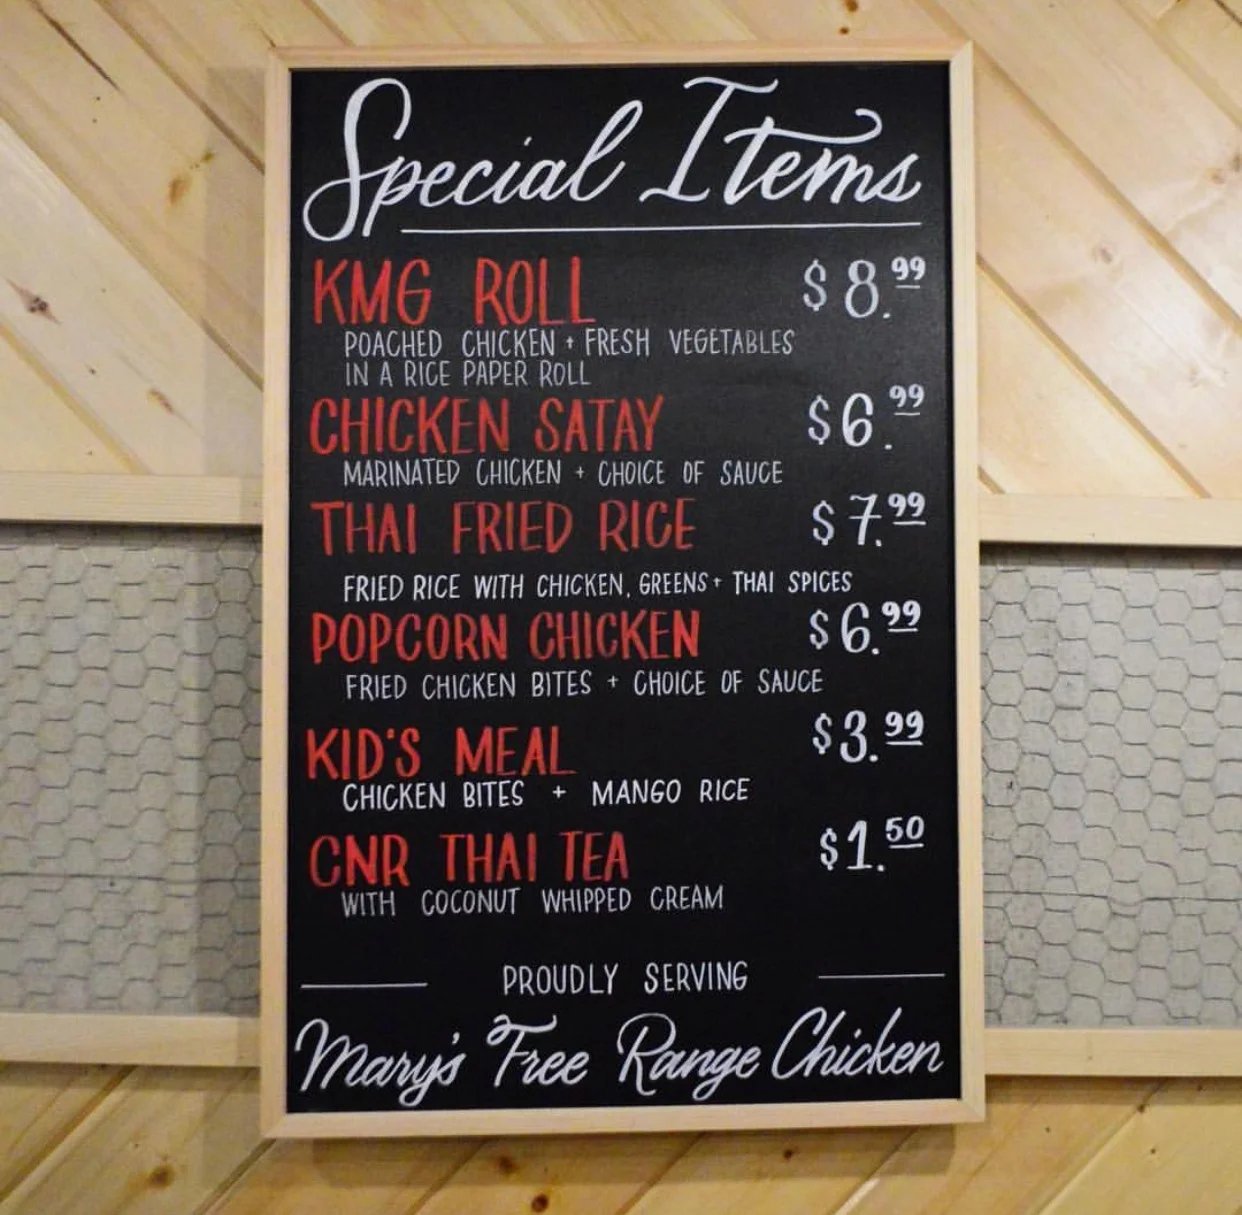 Special Items
KMG ROLL $8.99
POACHED CHICKEN + FRESH VEGETABLES
IN A RICE PAPER ROLL
CHICKEN SATAY $6.99
MARINATED CHICKEN + CHOICE OF SAUCE
THAI FRIED RICE $7.99
FRIED RICE WITH CHICKEN, GREENS + THAI SPICES
POPCORN CHICKEN $6.99
FRIED CHICKEN BITES + CHOICE OF SAUCE
KID'S MEAL $3.99
CHICKEN BITES + MANGO RICE
CNR THAI TEA $1.50
WITH COCONUT WHIPPED CREAM
PROUDLY SERVING
Mary's Free Range Chicken